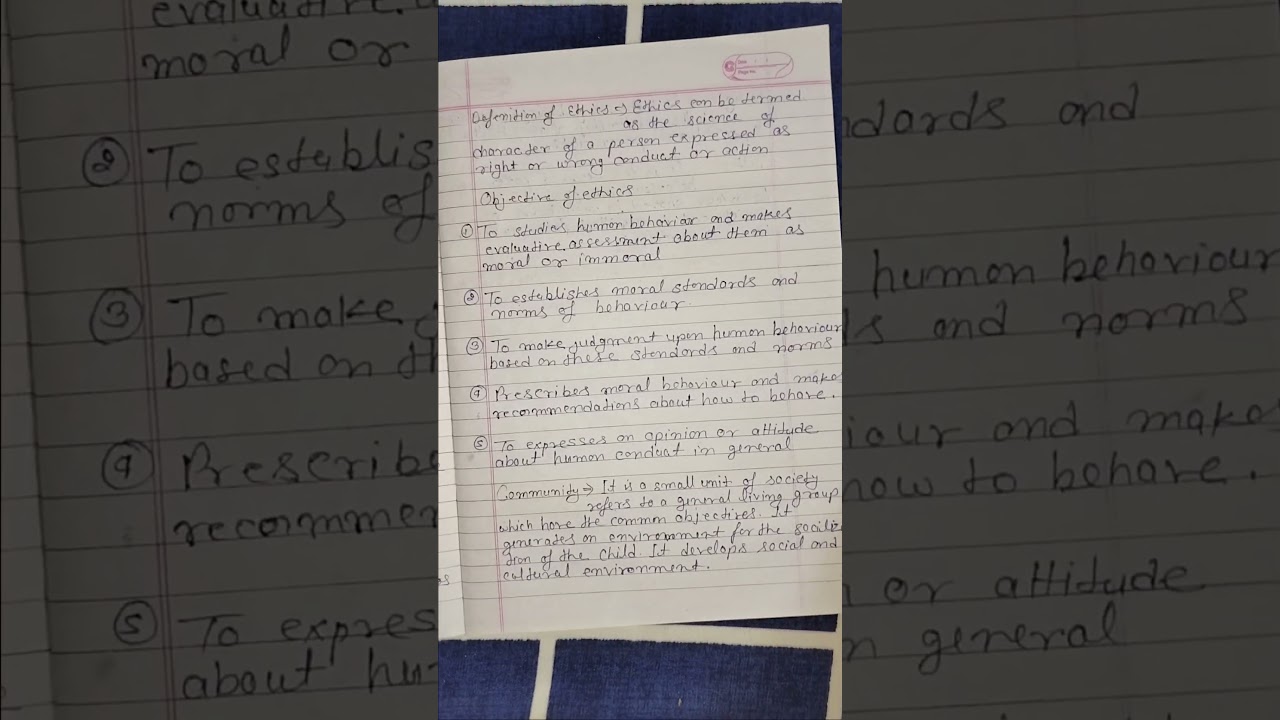 Defenition of Ethics → Ethics can be termed
as the science of
character of a person expressed as
right or wrong conduct or action
Objective of ethics
① To studies human behaviar and makes
evaluative assessment about them as
moral or immoral
② To establishes moral standards and
norms of behaviour.
③ To make judgment upon human behaviour
based on these standards and norms
④ Prescribes moral behaviour and makes
recommendations about how to behave.
⑤ To expresses an opinion or attitude
about human conduct in general
Community → It is a small unit of society
refers to a general living group
which have the common objectives. It
generates an environment for the sociliz
tion of the child. It develops social and
cultural environment.